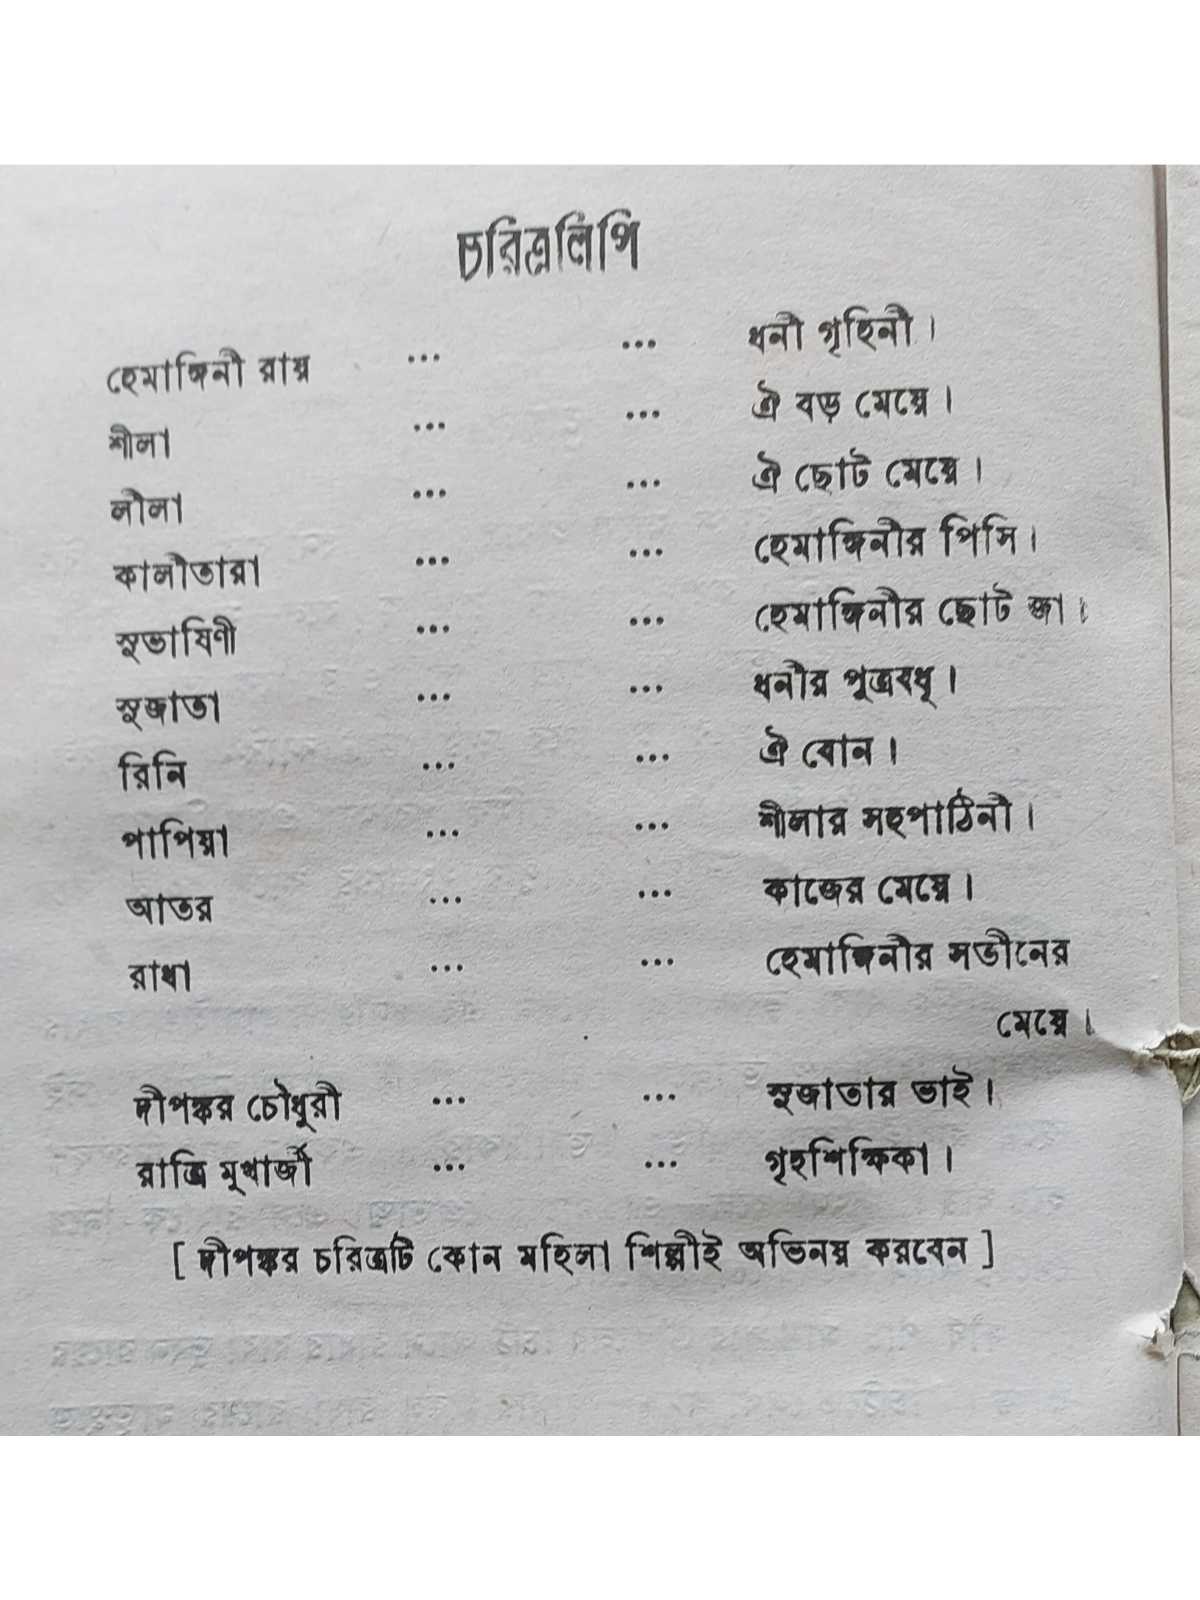 চরিত্রলিপি
হেমাঙ্গিনী রায় ... ... ধনী গৃহিনী।
শীলা ... ... ঐ বড় মেয়ে।
লীলা ... ... ঐ ছোট মেয়ে।
কালীতারা ... ... হেমাঙ্গিনীর পিসি।
সুভাষিণী ... ... হেমাঙ্গিনীর ছোট জা।
সুজাতা ... ... ধনীর পুত্রবধূ।
রিনি ... ... ঐ বোন।
পাপিয়া ... ... শীলার সহপাঠিনী।
আতর ... ... কাজের মেয়ে।
রাধা ... ... হেমাঙ্গিনীর সতীনের
মেয়ে।
দীপঙ্কর চৌধুরী ... ... সুজাতার ভাই।
রাত্রি মুখার্জী ... ... গৃহশিক্ষিকা।
[ দীপঙ্কর চরিত্রটি কোন মহিলা শিল্পীই অভিনয় করবেন ]